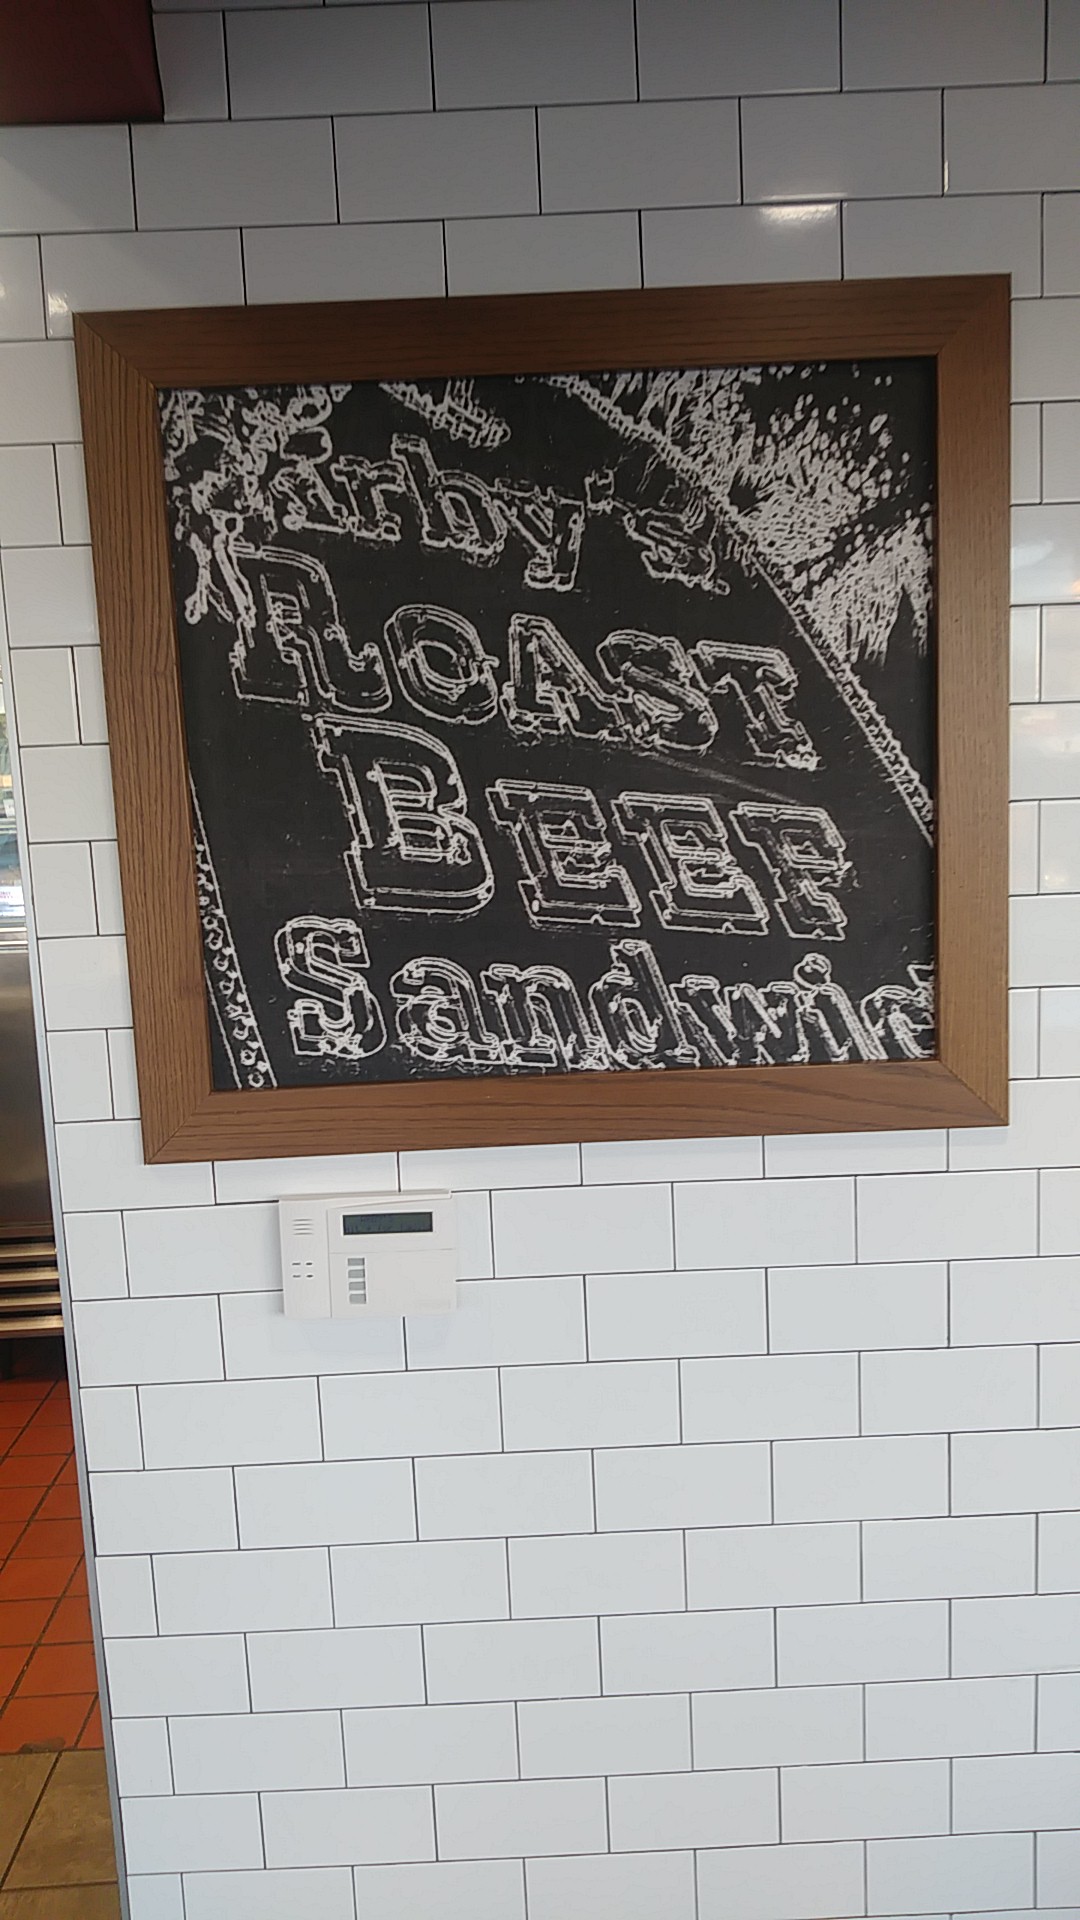 Kirby's
ROAST
BEEF
Sandwic